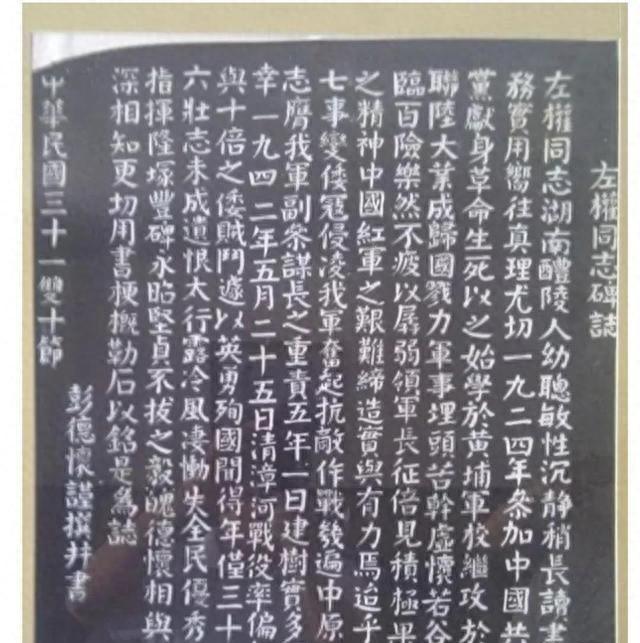 左權同志碑誌
左權同志湖南醴陵人幼聰敏性沉静稍長讀書
務實用嚮往真理尤切一九二四年叅加中國共
黨獻身革命生死以之始學於黄埔軍校繼攻於
聯陸大業成歸國戮力軍事埋頭苦幹虚懷若谷
臨百險樂然不疲以孱弱領軍長征倍見積極果
之精神中國紅軍之艱難締造實與有力焉迨乎
七事變倭冦侵凌我軍奮起抗敵作戰幾遍中原
志膺我軍副叅謀長之重責五年一日建樹實多
幸一九四二年五月二十五日清漳河戰役率偏
與十倍之倭賊鬥遽以英勇殉國聞得年僅三十
六壯志未成遺恨太行露冷風凄慟失全民優秀
指揮隆塚豐碑永昭堅貞不拔之毅魄德懷相與
深相知更切用書梗概勒石以銘是為誌
中華民國三十一雙十節
彭德懷謹撰并書